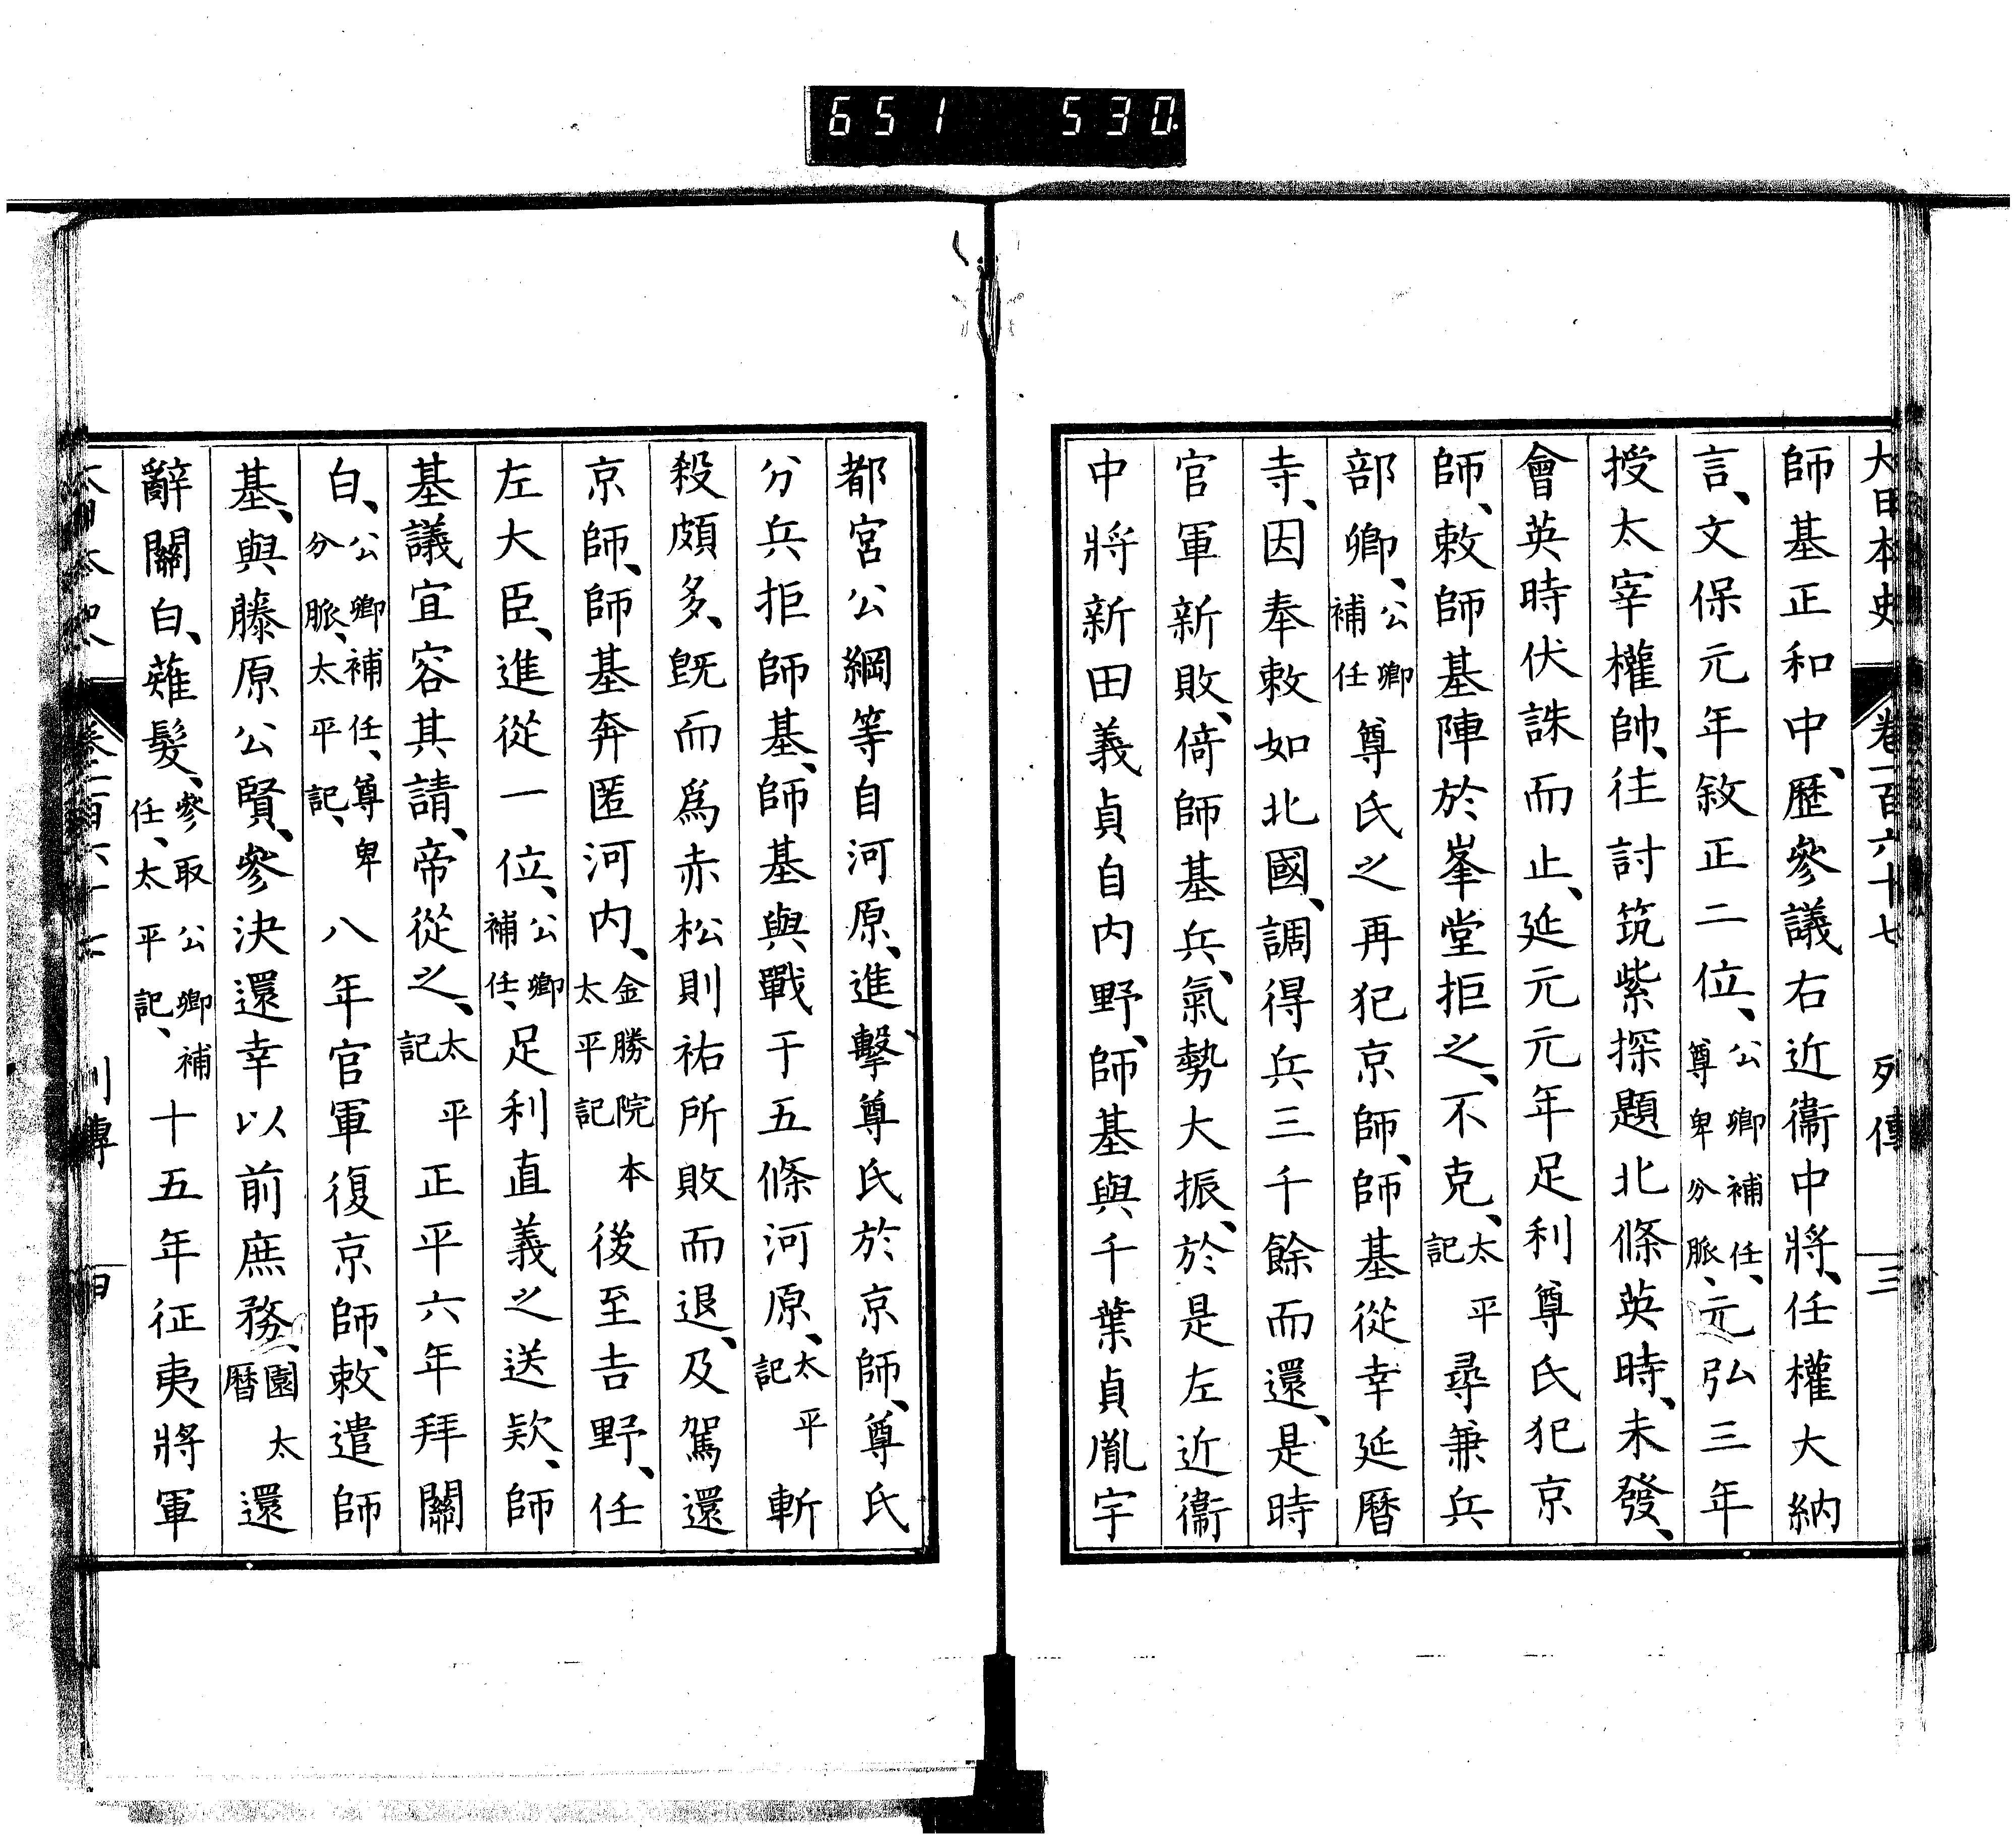 651 530.
大日本史 卷一百六十七 列傳 三
師基正和中、歷參議右近衞中將、任權大納
言、文保元年敘正二位、公卿補任、尊卑分脈、元弘三年
授太宰權帥、往討筑紫探題北條英時、未發、
會英時伏誅而止、延元元年足利尊氏犯京
師、敕師基陣於峯堂拒之、不克、太平記尋兼兵
部卿、公卿補任尊氏之再犯京師、師基從幸延曆
寺、因奉敕如北國、調得兵三千餘而還、是時
官軍新敗、倚師基兵、氣勢大振、於是左近衞
中將新田義貞自内野、師基與千葉貞胤宇
都宮公綱等自河原、進擊尊氏於京師、尊氏
分兵拒師基、師基與戰于五條河原、太平記斬
殺頗多、既而爲赤松則祐所敗而退、及駕還
京師、師基奔匿河内、金勝院本太平記後至吉野、任
左大臣、進從一位、公卿補任、足利直義之送欵、師
基議宜容其請、帝從之、太平記正平六年拜關
白、公卿補任、尊卑分脈、太平記、八年官軍復京師、敕遣師
基、與藤原公賢、參決還幸以前庶務、園太曆還
辭關白、薙髮、參取公卿補任、太平記、十五年征夷將軍